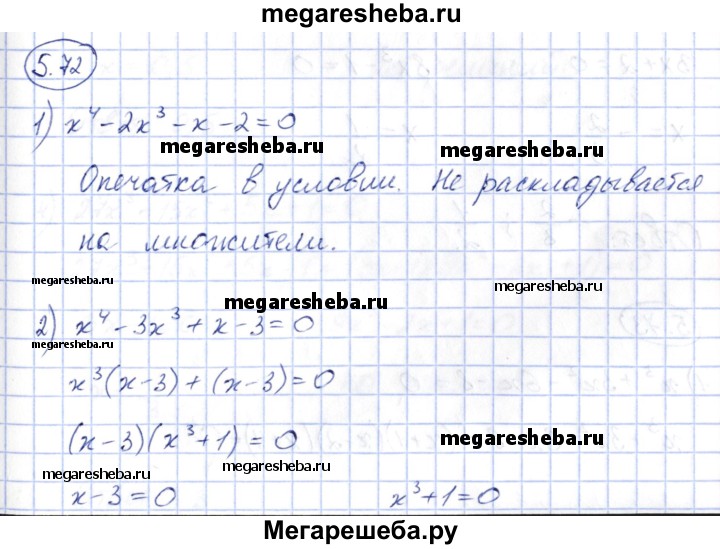 megaresheba.ru
5.72
1) x⁴ - 2x³ - x - 2 = 0
megaresheba.ru megaresheba.ru
Опечатка в условии. Не раскладывается
на множители.
megaresheba.ru
megaresheba.ru
2) x⁴ - 3x³ + x - 3 = 0
megaresheba.ru
x³(x - 3) + (x - 3) = 0
(x - 3)(x³ + 1) = 0
megaresheba.ru
megaresheba.ru megaresheba.ru
x - 3 = 0 x³ + 1 = 0
Мегарешеба.ру